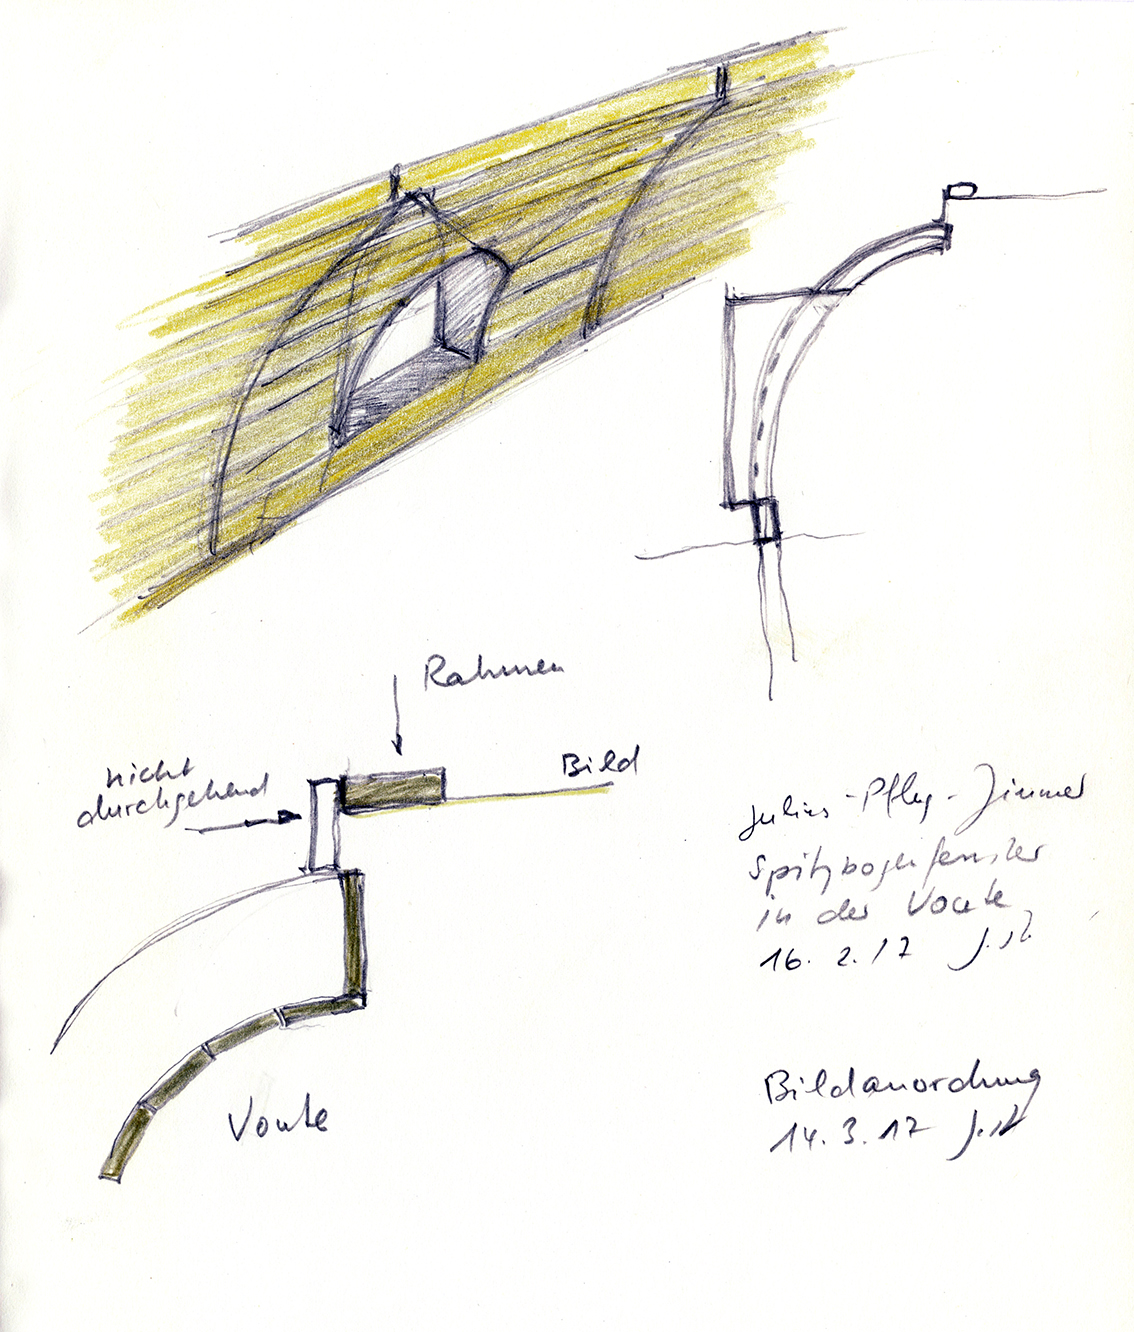 Rahmen
nicht
durchgehend
Bild
Voute
Julius-Pflug-Zimmer
Spitzbogenfenster
in der Voute
16. 2. 17
Bildanordnung
14. 3. 17